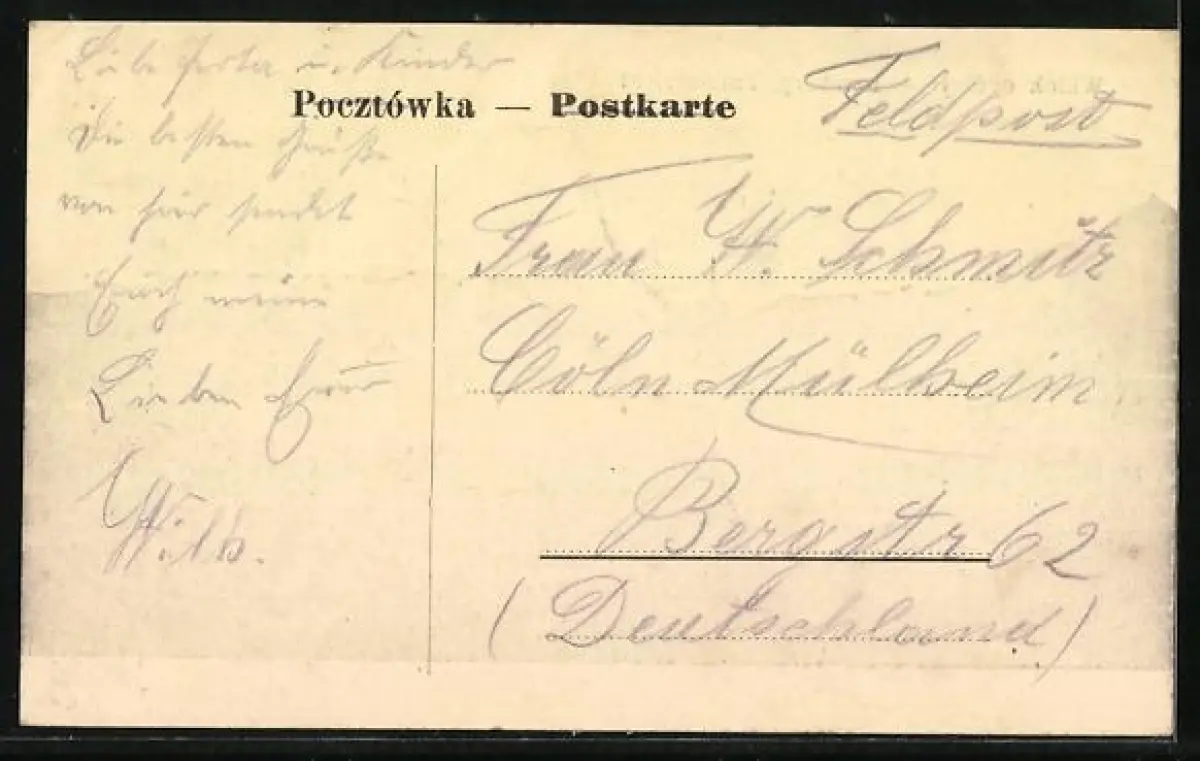 Liebe u. Kinder
Pocztówka — Postkarte
Feldpost
Die besten Grüße
von hier sendet
Euch
Lieben
Wilh.
Frau W. Schmitz
Cöln Mülheim
Bergstr 62
(Deutschland)